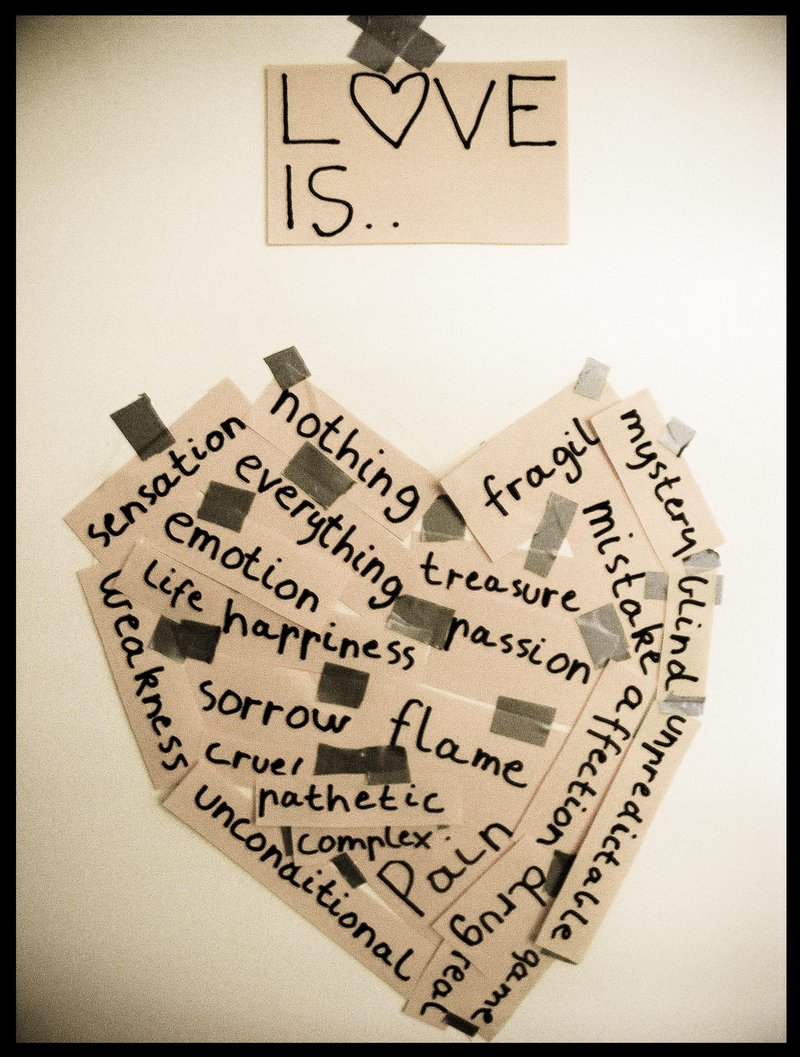 L♡VE
IS..
nothing
fragil
mystery
sensation
everything
mistake
emotion
treasure
blind
life
happiness
passion
weakness
sorrow
flame
affection
unpredictable
cruel
pathetic
complex
unconditional
pain
drug
real
game